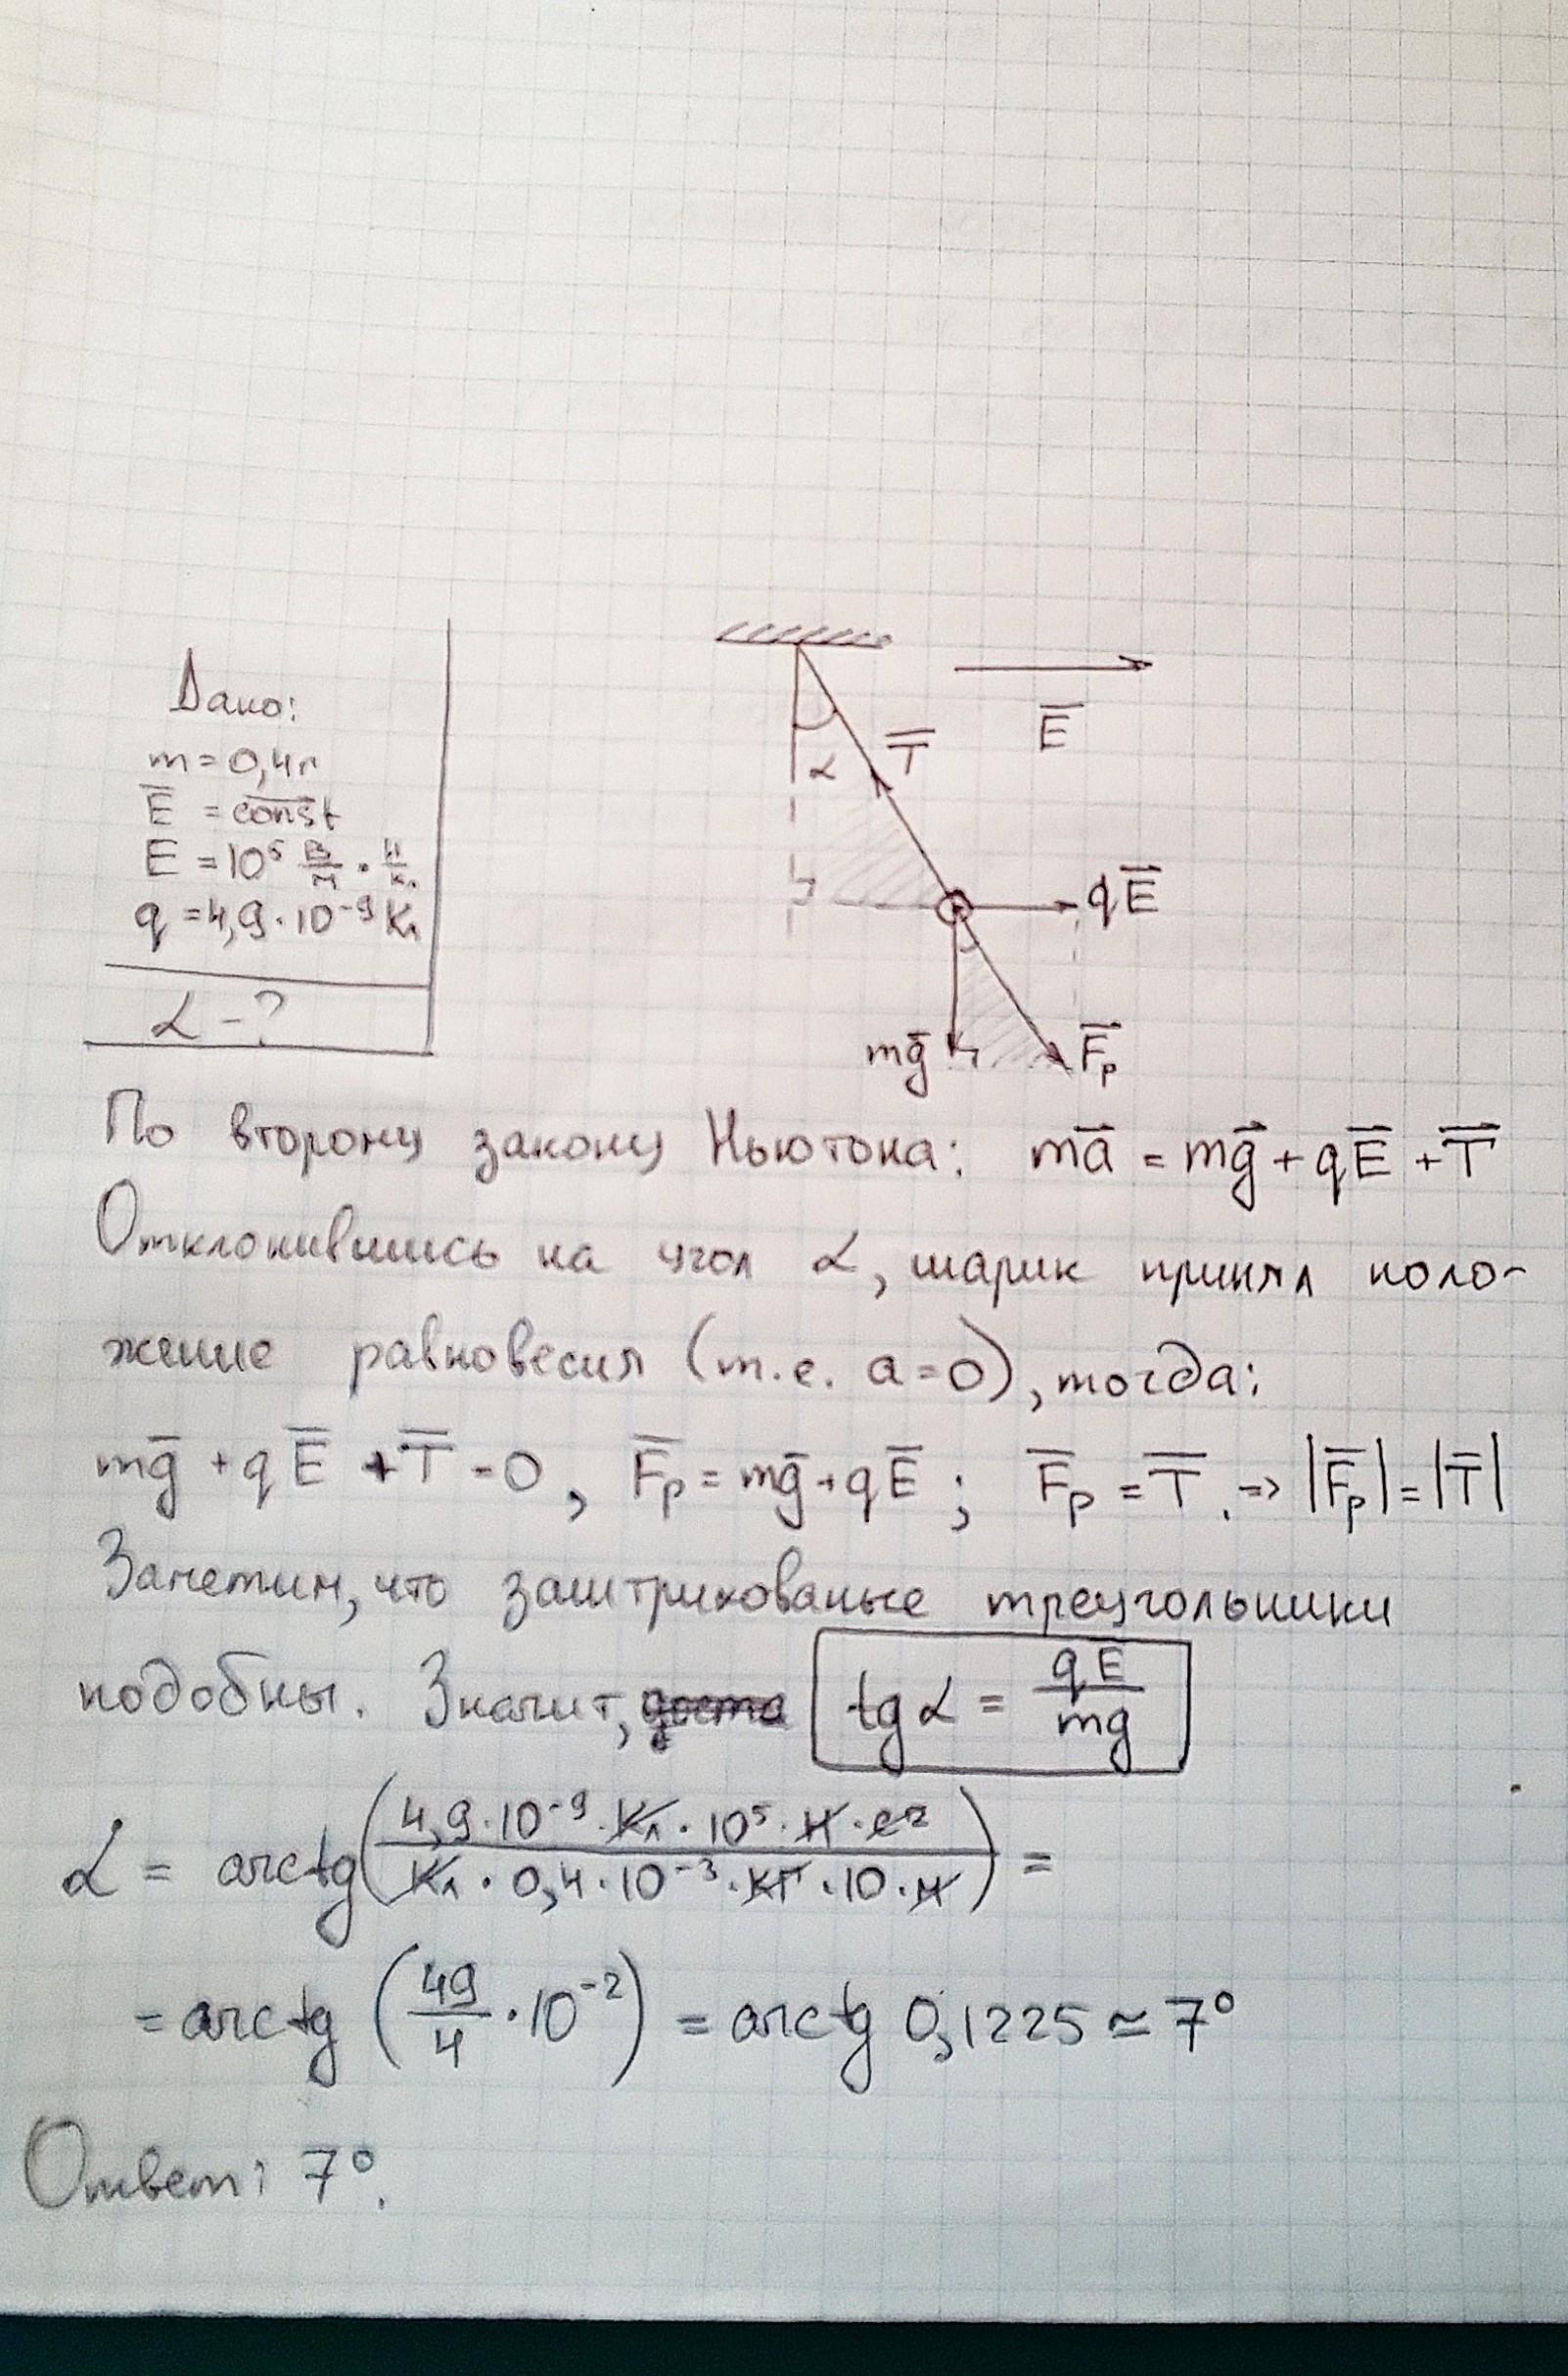 Дано:
m = 0,4г
E̅ = const
E = 10⁵ В/м · Н/Кл
q = 4,9·10⁻⁹ Кл
α - ?
α
T̅
E̅
qE̅
mg̅
F̅р
По второму закону Ньютона: ma̅ = mg̅ + qE̅ + T̅
Отклонившись на угол α, шарик принял поло-
жение равновесия (т.е. a = 0), тогда:
mg̅ + qE̅ + T̅ = 0, F̅р = mg̅ + qE̅; F̅р = T̅. => |F̅р| = |T̅|
Заметим, что заштрихованые треугольники
подобны. Значит, tg α = qE/mg
α = arctg(4,9·10⁻⁹·Кл·10⁵·Н·с²/Кл·0,4·10⁻³·кг·10·м) =
= arctg (49/4 · 10⁻²) = arctg 0,1225 ≃ 7°
Ответ: 7°.